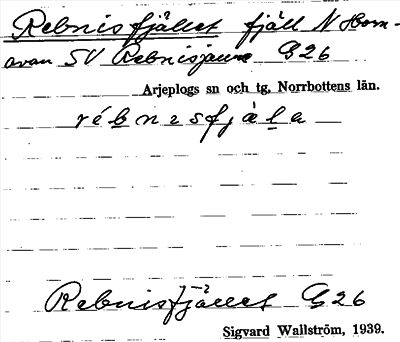 Rebnisfjället fjäll N Horn-
avan SV Rebnisjaure G26
Arjeplogs sn och tg, Norrbottens län.
rébnɪsfjäla
Rebnisfjället G26
Sigvard Wallström, 1939.